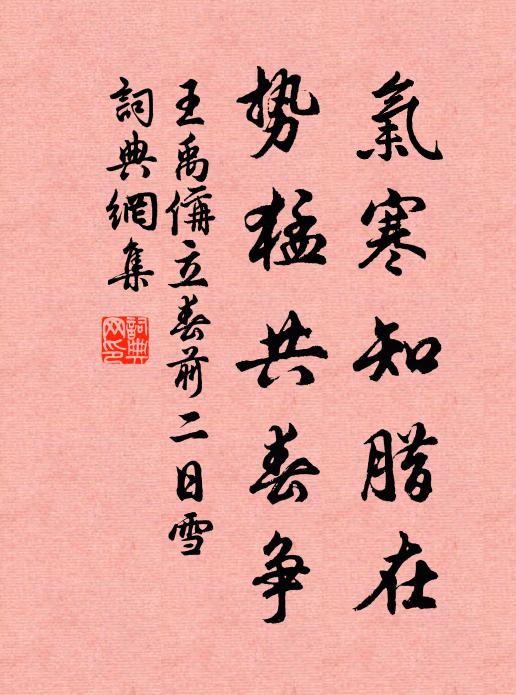 氣寒知腊在
势猛共春争
王禹偁立春前二日雪
詞典網集
詞典網印